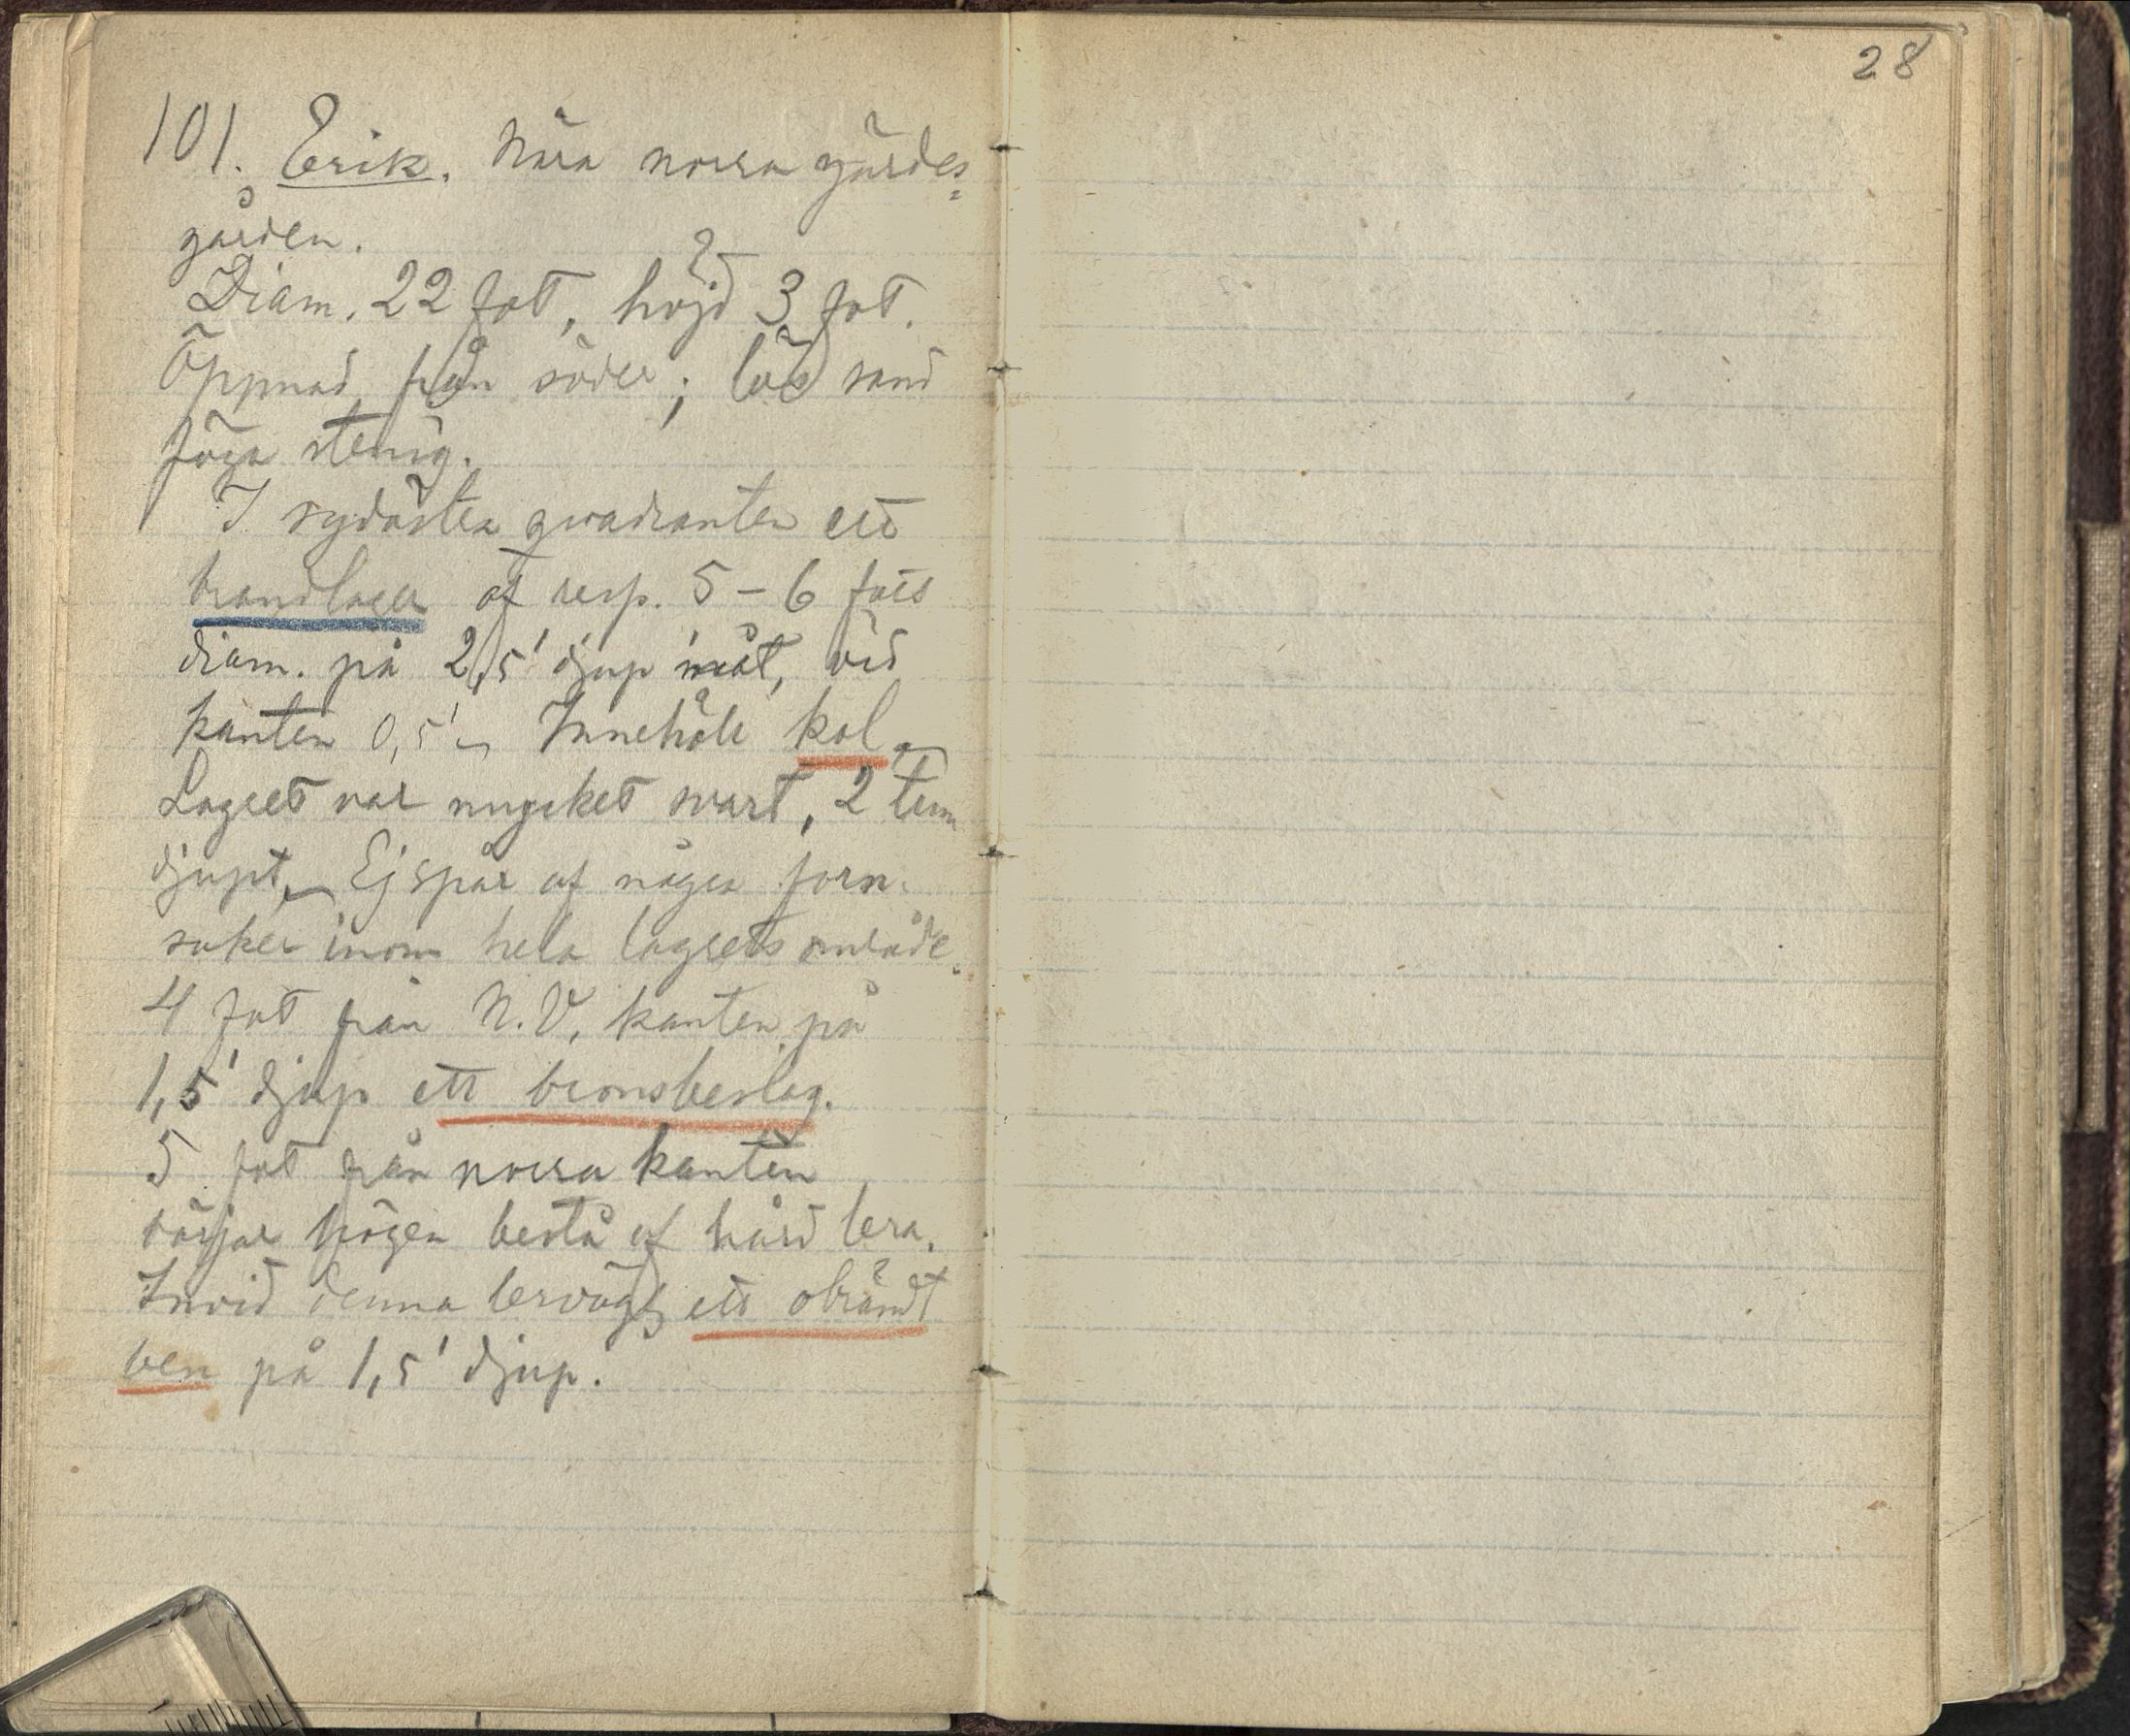 101. Erik. Nära norra gärdes=
gården.
Diam. 22 fot, höjd 3 fot.
Öppnad från söder; lös sand
föga stenig.
I sydöstra qvadranten ett
brandlager af resp. 5 - 6 fots
diam. på 2,5' djup inåt, vid
kanten 0,5' Innehöll kol.
Lagret var mycket svart, 2 tum
djupt, Ej spår af några forn-
saker inom hela lagrets område.
4 fot från N.V. kanten på
1,5' djup ett bronsbeslag.
5 fot från norra kanten
börjar högen bestå af hård lera.
Invid denna lervägg ett obrändt
ben på 1,5' djup.
28